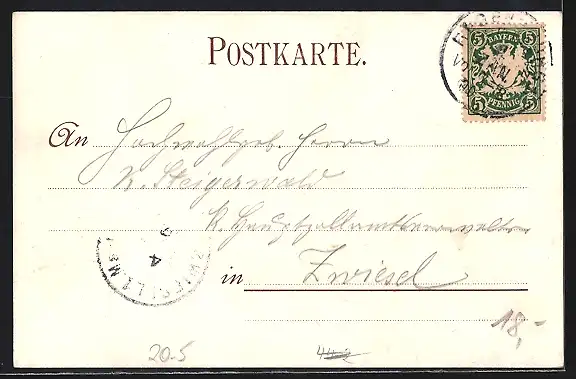 POSTKARTE.
BAYERN
5 5
5 5
PFENNIG
An Hochwohlgeb. Herrn
K. Steigerwald
K. Hauptzollamtsverwalter
in Zwiesel
ZWIESEL
4
18,-
20-5